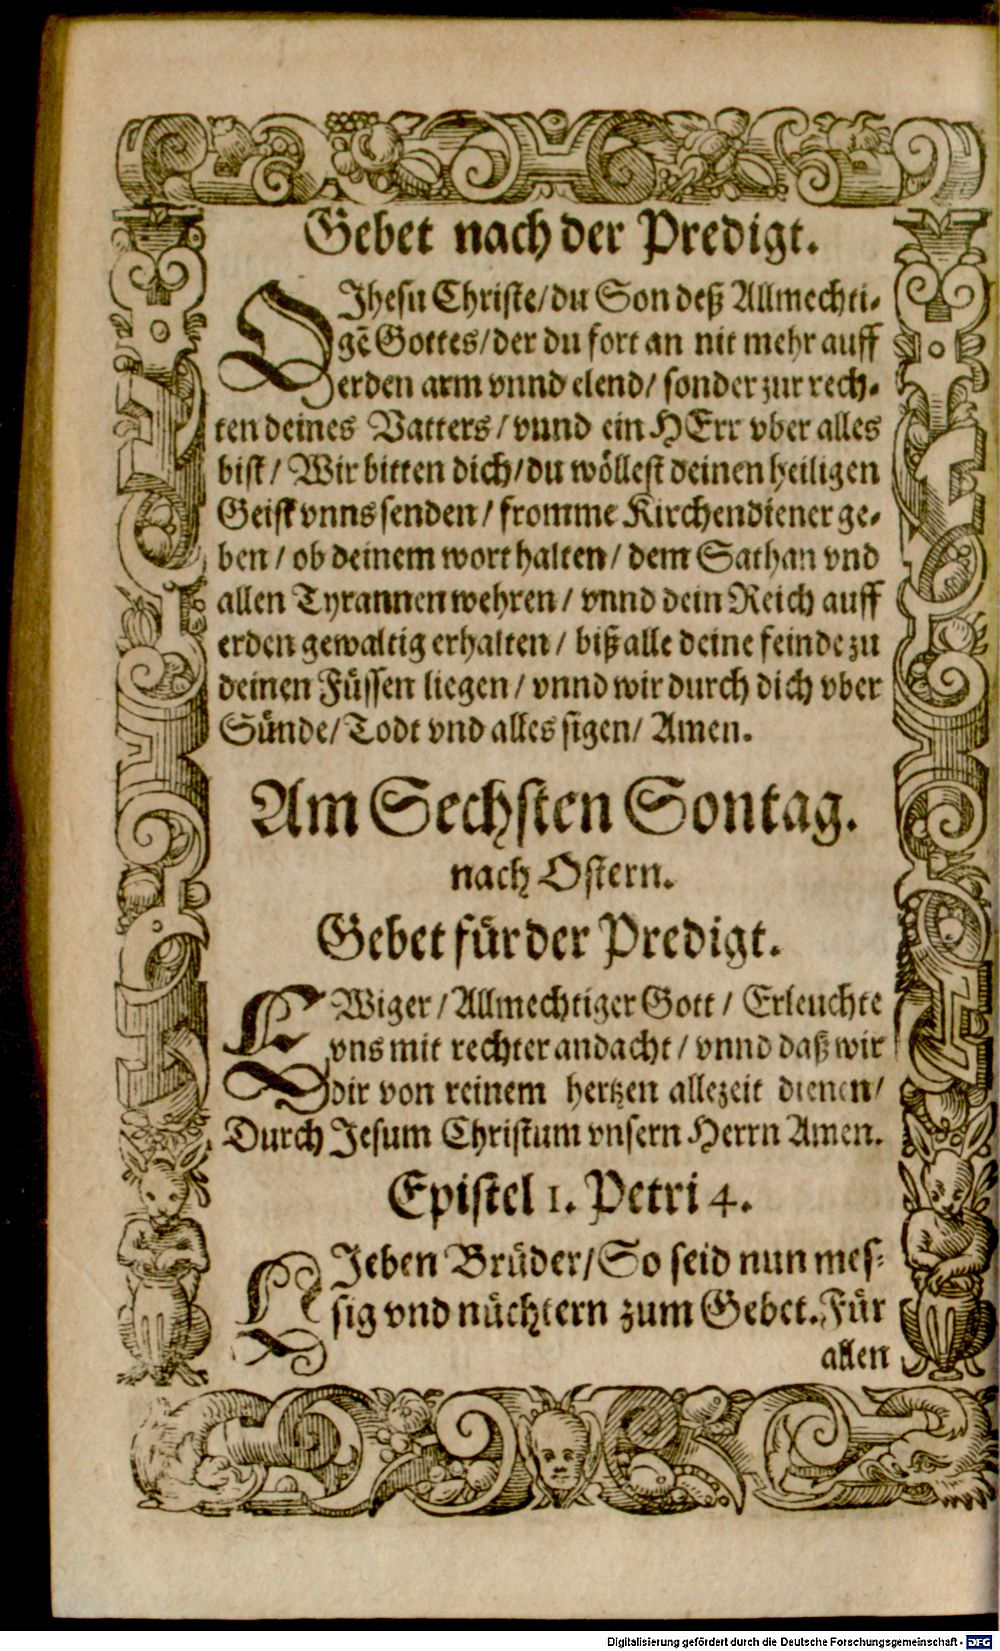 Gebet nach der Predigt.
O Jhesu Christe/ du Son deß Allmechti-
gē Gottes/ der du fort an nit mehr auff
erden arm vnnd elend/ sonder zur rech-
ten deines Vatters/ vnnd ein HErr vber alles
bist/ Wir bitten dich/ du wöllest deinen heiligen
Geist vnns senden/ fromme Kirchendiener ge-
ben/ ob deinem wort halten/ dem Sathan vnd
allen Tyrannen wehren/ vnnd dein Reich auff
erden gewaltig erhalten/ biß alle deine feinde zu
deinen Füssen liegen/ vnnd wir durch dich vber
Sünde/ Todt vnd alles sigen/ Amen.
Am Sechsten Sontag.
nach Ostern.
Gebet für der Predigt.
EWiger/ Allmechtiger Gott/ Erleuchte
vns mit rechter andacht/ vnnd daß wir
dir von reinem hertzen allezeit dienen/
Durch Jesum Christum vnsern Herrn Amen.
Epistel 1. Petri 4.
LJeben Brüder/ So seid nun mes-
sig vnd nüchtern zum Gebet. Für
allen
Digitalisierung gefördert durch die Deutsche Forschungsgemeinschaft - DFG